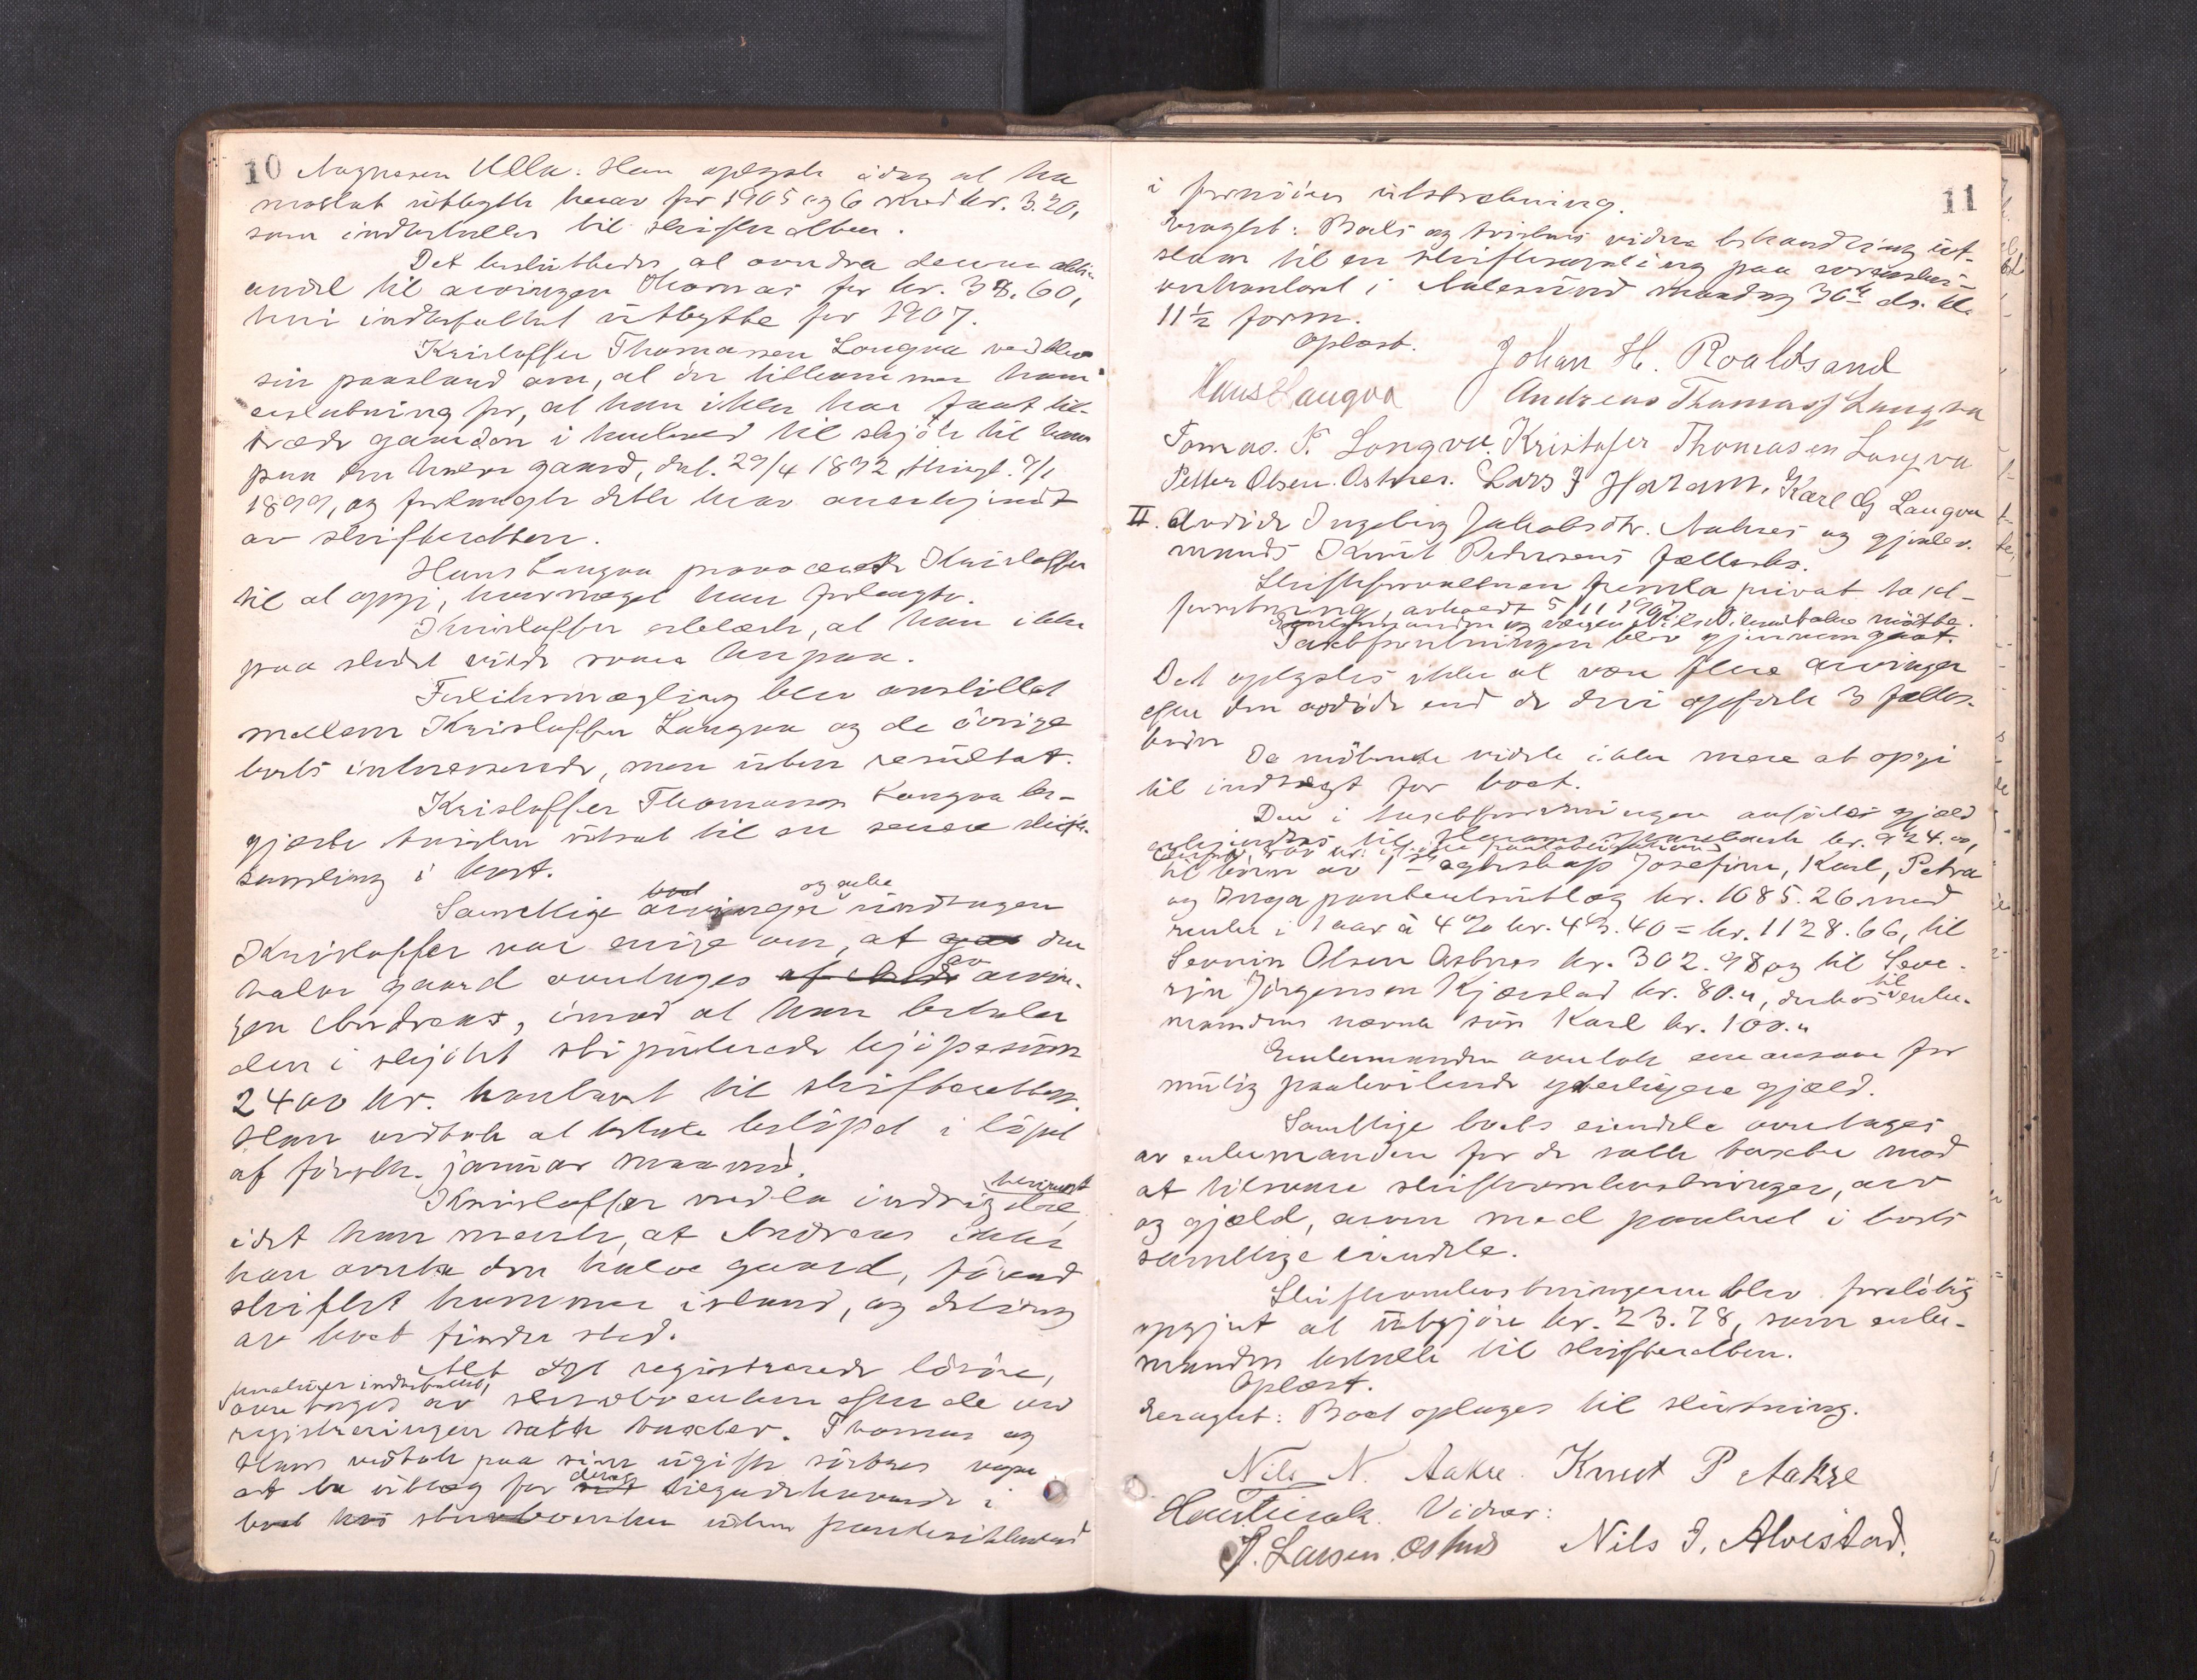 10 Magnesen Ulla. Han oplyste idag at ha
mottat utbytte herav for 1905 og 6 med kr. 3.20,
som indbetalles til skifteretten.
Det besluttedes at overdra denne aktie-
andel til arvingen Thomas for kr. 38.60,
heri indbefattet utbytte for 1907.
Kristoffer Thomassen Longva vedblev
sin paastand om, at der tilkommer ham
erstatning for, at han ikke har faat til-
træde gaarden i henhold til skjöte til ham
paa den halve gaard, dat. 29/4 1892, thingl. 7/1
1899, og forlangte dette krav anerkjendt
av skifteretten.
Hans Longva provocerte Kristoffer
til at opgi, hvormeget han forlangte.
Kristoffer erklærte, at han ikke
paa stedet vilde svare herpaa.
Forliksmægling blev anstillet
mellem Kristoffer Longva og de övrige
boets interesserede, men uten resultat.
Kristoffer Thomassen Longva be-
gjærte tvisten utsat til en senere skifte-
samling i boet.
Samtlige arvinger og enke undtagen
Kristoffer var enige om, at den
halve gaard overtages av arvin-
gen Andreas, imod at han betaler
den i skjötet stipulerede kjöpesum
2400 kr. kontant til skifteretten.
Han vedtok at betale belöpet i löpet
af förstk. januar maaned.
Kristoffer nedla indsigelse herimot,
idet han mente, at Andreas ikke
kan overta den halve gaard, förend
skiftet kommer istand, og deling
av boet finder sted.
Alt det registrerede lösöre,
overtages av sterboenken efter de ved
registreringen satte takster. Thomas og
Hans vedtok paa sine ugifte söstres vegne
at ta utlæg for deres tilgodehavende i
boet hos sterboenken uten pantesikkerhed
11
i fornöden utstrækning.
Eragtet: Boets og tvistens videre behandling ut-
staar til en skiftesamling paa sorenskri-
verkontoret i Aalesund mandag 30te ds. kl.
11½ form.
Oplæst.
Johan H. Roaldsand
Hans Laugva Andreas Thomass Langva
Tomas. T. Longva. Kristofer Thomasen Longva
Petter Olsen. Ostnes. Lars J Haram. Karl G Langva
II. Avdöde Ingeborg Jakobsdtr. Aakres og gjenlev.
mands Knut Pedersens fællesbo.
Skifteforvalteren fremla privat takst-
forretning, avholdt 5/11 1907.
Takstforretningen blev gjennemgaat.
Det oplystes ikke at være flere arvinger
efter den avdöde end de deri opförte 3 fælles-
börn
De mötende vidste ikke mere at opgi
til indtægt for boet.
Den i takstforretningen anförte gjæld
anerkjendtes til Harams sparebank kr. 924.00,
til börn av 1ste egteskap Josefine, Karl, Petra
og Inga panteutlæg kr. 1085.26 med
renter i 1 aar à 4 % kr. 43.40 = kr. 1128.66, til
Severin Olsen Astnes kr. 302.98 og til Seve-
rin Jörgensen Kjærstad kr. 80.", derhos til enke-
mandens nævnte sön Karl kr. 100."
Enkemanden overtok eneansvar for
mulig paakvilende yderligere gjæld.
Samtlige boets eiendele overtages
av enkemanden for de satte takster mod
at tilsvare skifteomkostninger, arv
og gjæld, arven med panteret i boets
samtlige eiendele.
Skifteomkostningerne blev foreløbig
opgjort at utgjöre kr. 23.78, som enke-
manden betalte til skifteretten.
Oplæst.
Eragtet: Boet optages til slutning.
Nils N. Aakre. Knut P Aakre
Vidner:
P. Larsen. Ostnes Nils J. Alvestad.